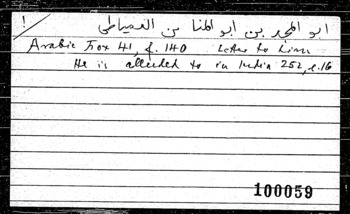 ابو المجد بن ابو المنا من الدمياطي
Arabic Box 41, f. 140 Letter to him
He is alluded to in India 252, l. 16
100059